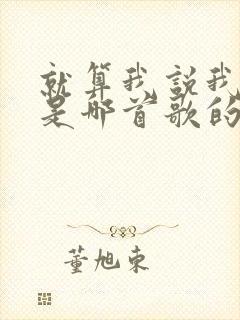 就算我说我
是那首歌的
董旭东